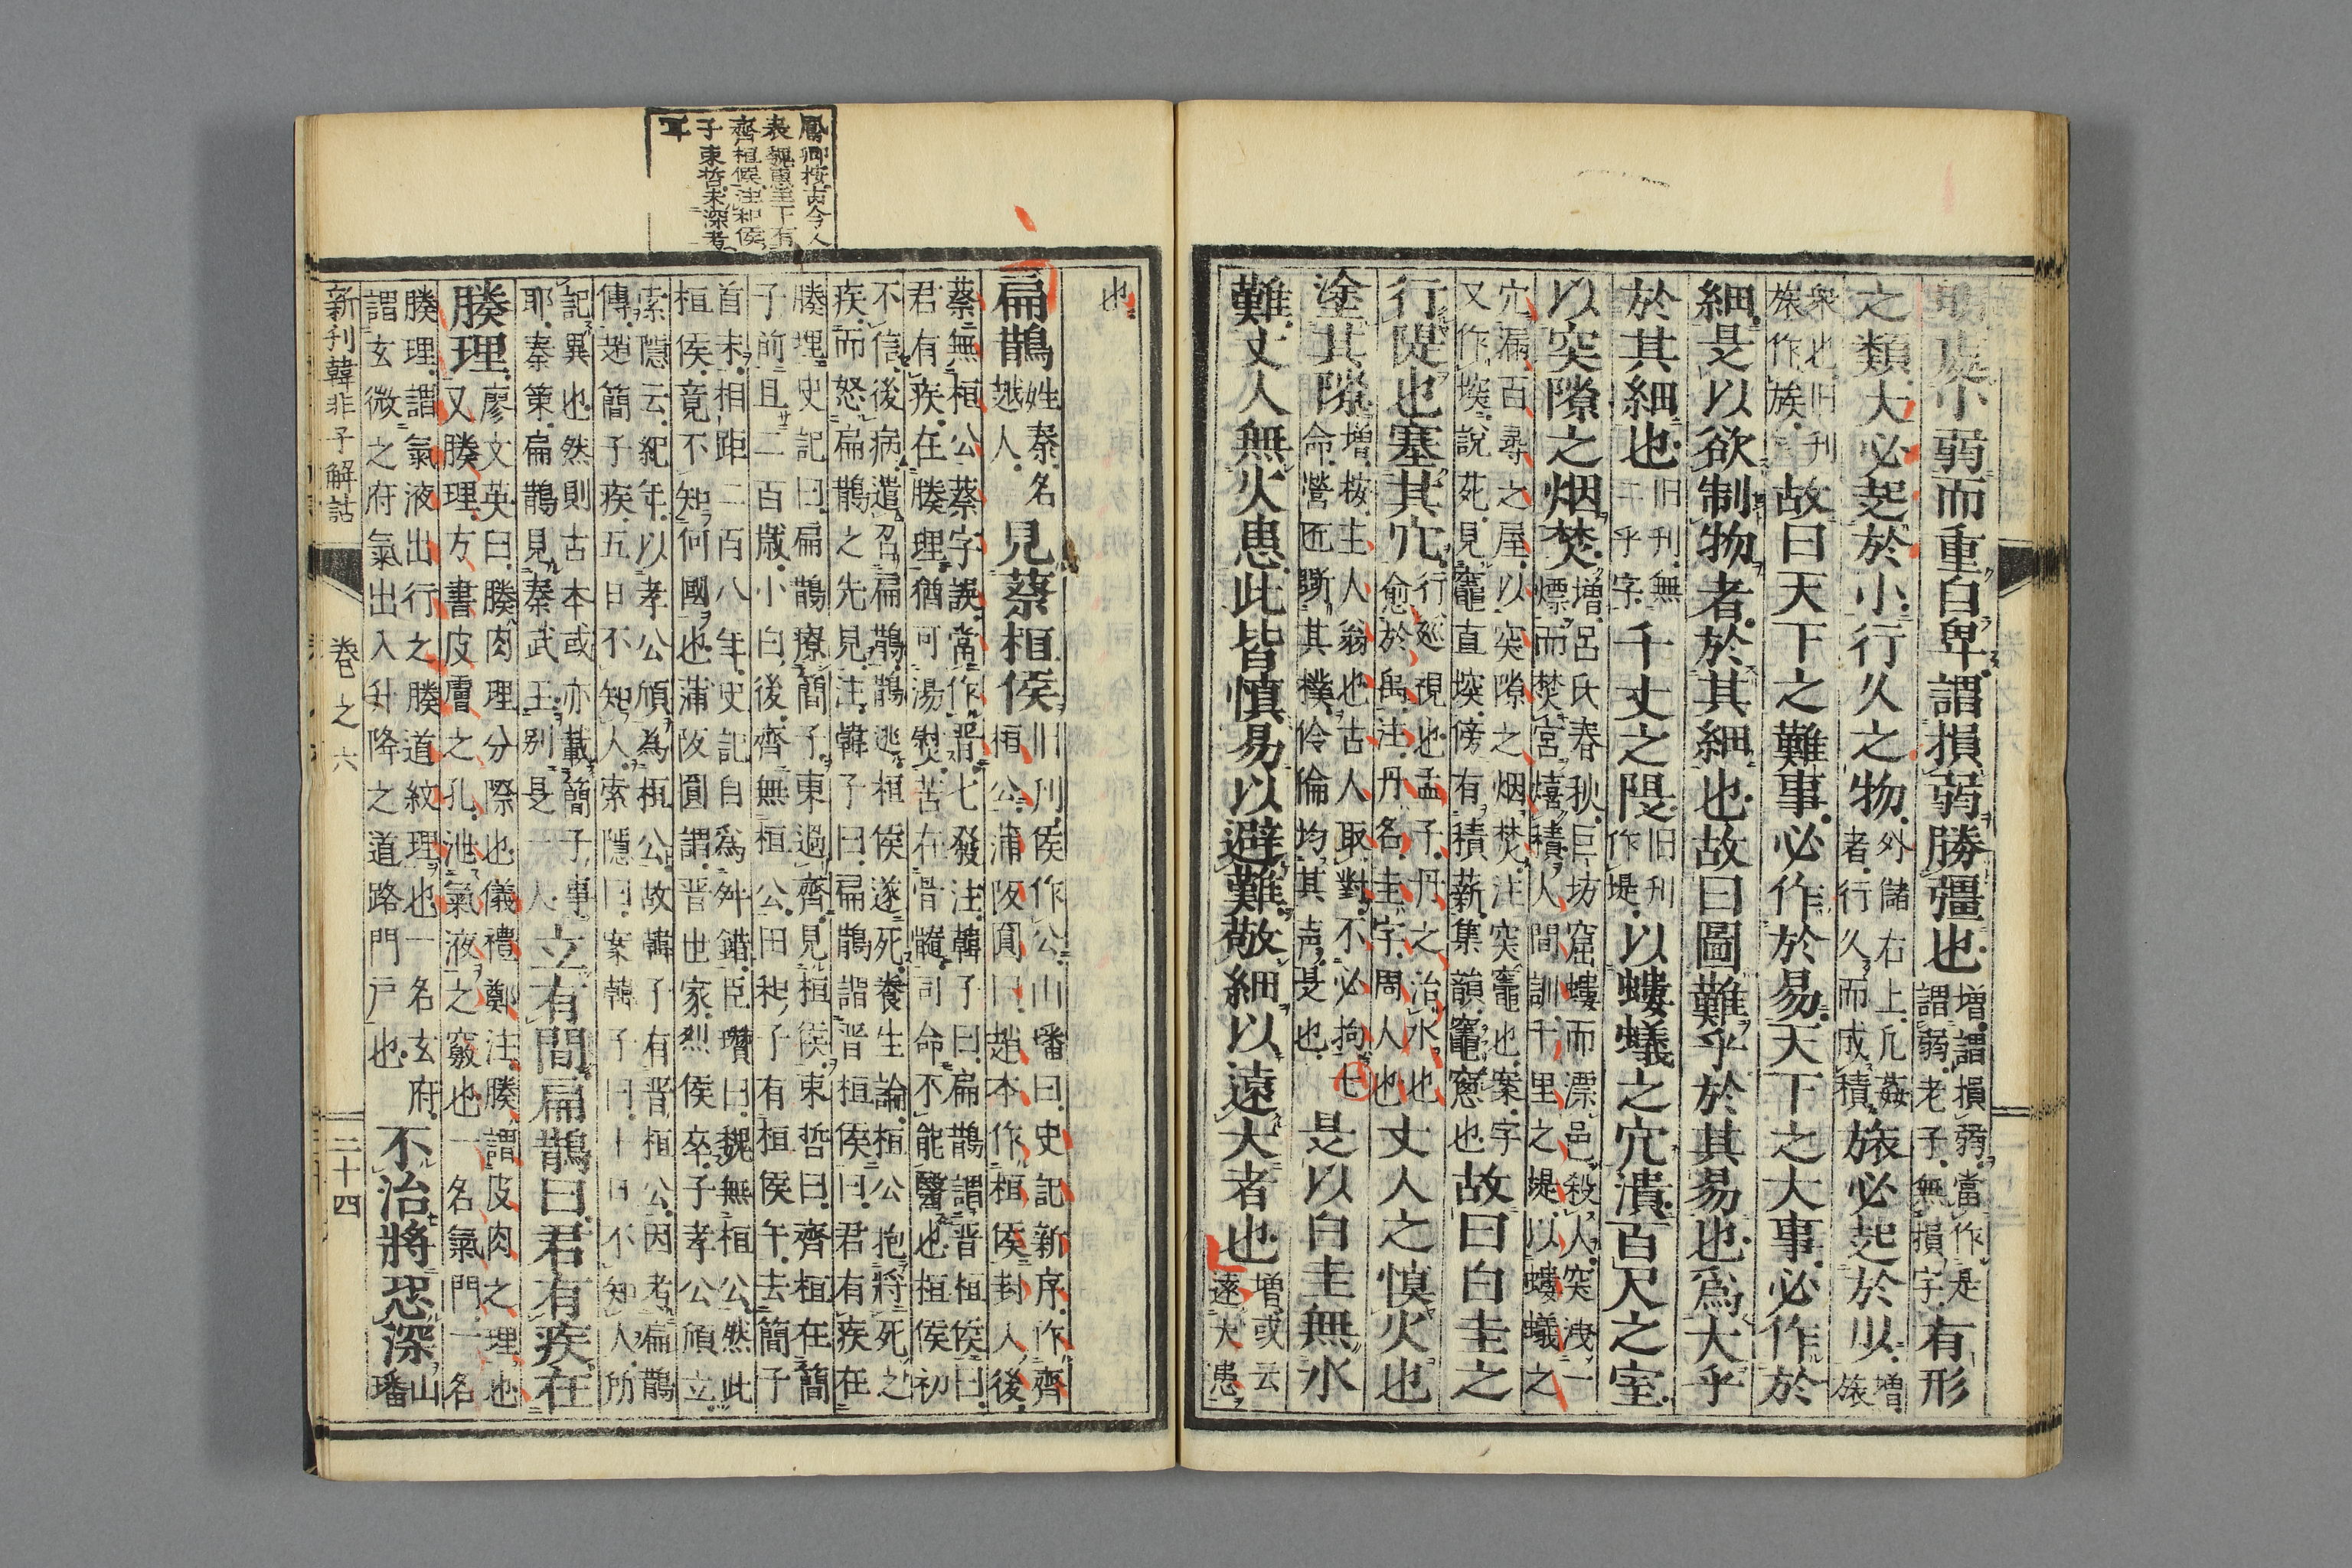 處小弱而重自卑謂損弱勝彊也增謂損弱當作是謂弱老子無損字有形
之類大必起於小行久之物外儲右上凡姦者行久而成積族必起於以增族
衆也旧刊族作族故曰天下之難事必作於易天下之大事必作於
細是以欲制物者於其細也故曰圖難乎於其易也爲大乎
於其細也旧刊無二乎字千丈之隄旧刊作堤以螻蟻之穴潰百尺之室
以突隙之烟焚增呂氏春秋巨坊窟螻而漂邑殺人突洩一熛而焚宮熺積人間訓千里之堤以螻蟻之
穴漏百尋之屋以突隙之烟焚注突竈也案字又作堗說苑見竈直堗傍有積薪集韻竈窻也故曰白圭之
行隄也塞其穴行巡視也孟子丹之治水也愈於禹注丹名圭字周人也丈人之慎火也
塗其隙增按主人翁也古人取對不必拘七命營匠斲其樸伶倫均其声是也是以白圭無水
難丈人無火患此皆慎易以避難敬細以遠大者也增或云遂大患
也
扁鵲姓秦名越人見蔡桓侯旧刊侯作公山璠曰史記新序作齊桓公蒲阪圓曰趙本作桓侯封人後
蔡無桓公蔡字誤當作晋七發注韓子曰扁鵲謂晋桓侯曰君有疾在腠理猶可湯熨苦在骨髓司命不能醫也桓侯初
不信後病遣召扁鵲鵲逃桓侯遂死養生論桓公抱將死之疾而怒扁鵲之先見注韓子曰扁鵲謂晋桓侯曰君有疾在
腠理史記曰扁鵲療簡子東過齊見桓侯東晳曰齊桓在簡子前且二百歲小白後齊無桓公田和子有桓侯午去簡子
首末相距二百八年史記自爲舛錯臣瓚曰魏無桓公然此桓侯竟不知何國也蒲阪圓謂晋世家烈侯卒子孝公頎立
索隱云紀年以孝公頎為桓公故韓子有晋桓公因考扁鵲傳趙簡子疾五日不知人索隱曰案韓子曰十日不知人所
記異也然則古本或亦載簡子事耶秦策扁鵲見秦武王別是一人立有間扁鵲曰君有疾在
腠理廖文英曰腠肉理分際也儀禮鄭注腠謂皮肉之理也又腠理方書皮膚之孔泄氣液之竅也一名氣門一名
腠理謂氣液出行之腠道紋理也一名玄府謂玄微之府氣出入升降之道路門戸也不治將恐深山璠
新刊韓非子解詁 卷之六 二十四
鳳卿按古今人
表魏惠王下有
齊桓侯注和侯
子東晳未深考
耳